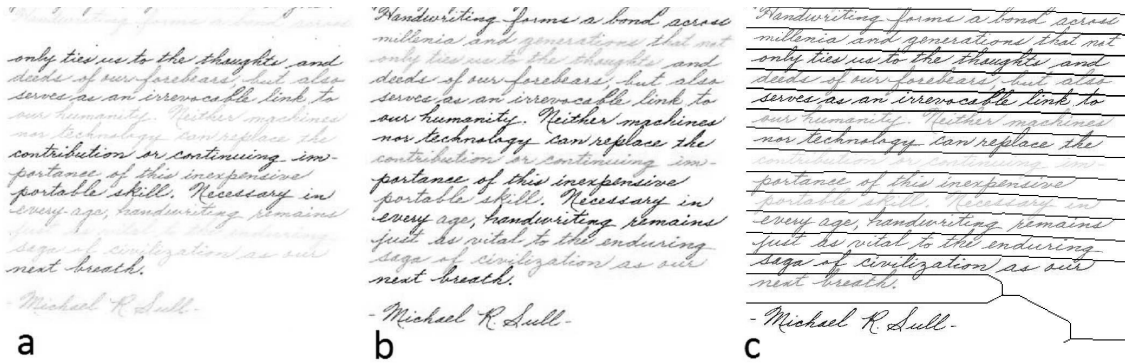 only ties us to the thoughts and
deeds of our forebears, but also
serves as an irrevocable link to
our humanity. Neither machines
nor technology can replace the
contribution or continuing im-
portance of this inexpensive
portable skill. Necessary in
every age, handwriting remains
just as vital to the enduring
saga of civilization as our
next breath.
- Michael R. Sull -
a
Handwriting forms a bond across
millenia and generations that not
only ties us to the thoughts and
deeds of our forebears, but also
serves as an irrevocable link to
our humanity. Neither machines
nor technology can replace the
contribution or continuing im-
portance of this inexpensive
portable skill. Necessary in
every age, handwriting remains
just as vital to the enduring
saga of civilization as our
next breath.
- Michael R. Sull -
b
Handwriting forms a bond across
millenia and generations that not
only ties us to the thoughts and
deeds of our forebears, but also
serves as an irrevocable link to
our humanity. Neither machines
nor technology can replace the
contribution or continuing im-
portance of this inexpensive
portable skill. Necessary in
every age, handwriting remains
just as vital to the enduring
saga of civilization as our
next breath.
- Michael R. Sull -
c